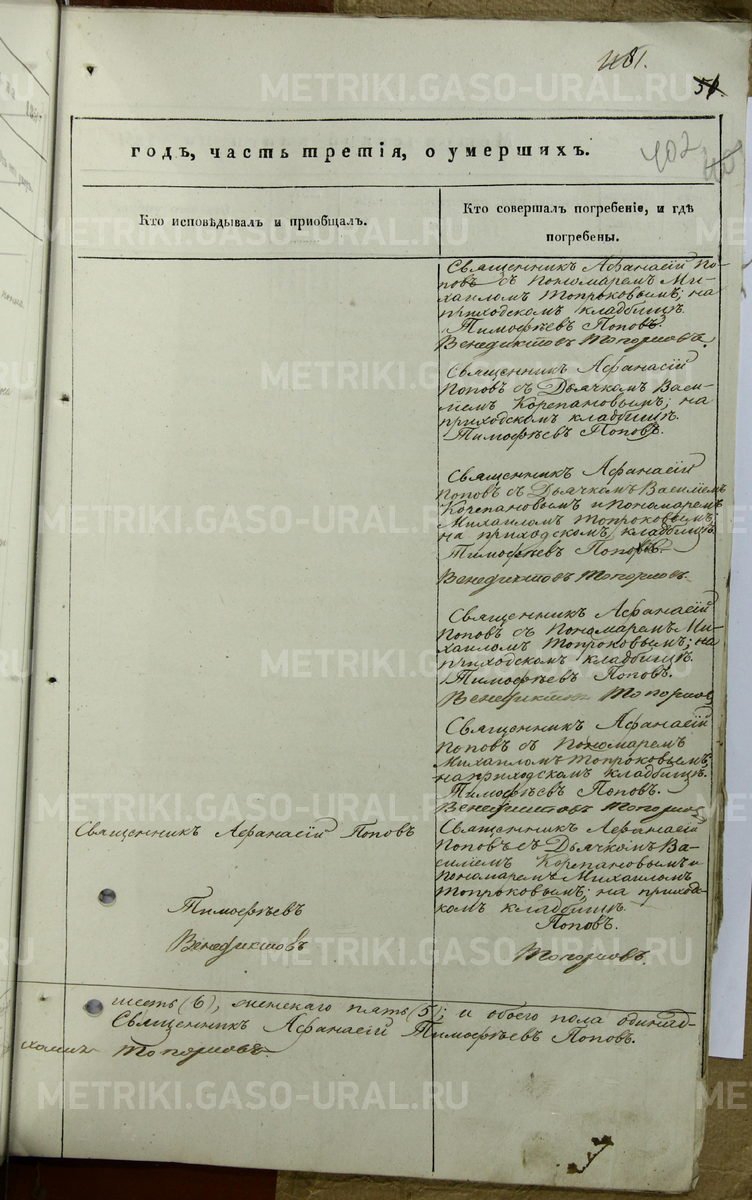 481.
51
402
годъ, часть третія, о умершихъ.
Кто исповѣдывалъ и приобщалъ.
Кто совершалъ погребеніе, и гдѣ
погребены.
Священникъ Афанасій По-
повъ съ Пономаремъ Ми-
хаиломъ Топорковымъ; на
приходскомъ кладбищѣ.
Тимофѣевъ Поповъ.
Венедиктовъ Топорковъ.
Священникъ Афанасій
Поповъ съ Дьячкомъ Васи-
лiемъ Корепановымъ; на
приходскомъ кладбищѣ.
Тимофѣевъ Поповъ.
Священникъ Афанасій
Поповъ съ Дьячкомъ Василіемъ
Корепановымъ и Пономаремъ
Михаиломъ Топорковымъ;
на приходскомъ кладбищѣ.
Тимофѣевъ Поповъ.
Венедиктовъ Топорковъ.
Священникъ Афанасій
Поповъ съ Пономаремъ Ми-
хаиломъ Топорковымъ; на
приходскомъ кладбищѣ.
Тимофѣевъ Поповъ.
Венедиктовъ Топорковъ
Священникъ Афанасій
Поповъ съ Пономаремъ
Михаиломъ Топорковымъ;
на приходскомъ кладбищѣ.
Тимофѣевъ Поповъ.
Венедиктовъ Топорковъ
Священникъ Афанасій Поповъ
Тимофѣевъ
Венедиктовъ
Священникъ Афанасій
Поповъ съ Дьячкомъ Ва-
силіемъ Корепановымъ и
Пономаремъ Михаиломъ
Топорковымъ; на приход-
скомъ кладбищѣ.
Поповъ.
Топорковъ.
шесть (6), женскаго пять (5); и обоего пола одиннад-
Священникъ Афанасій Тимофѣевъ Поповъ.
Топорковъ.
METRIKI.GASO-URAL.RU